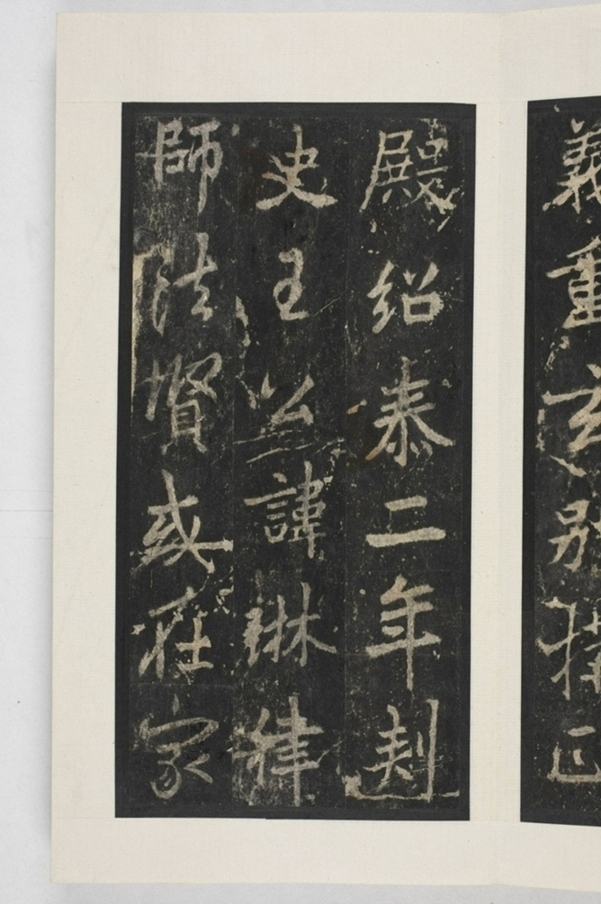 義重玄別構正
殿紹泰二年刺
史王公諱琳律
師法賢或在家